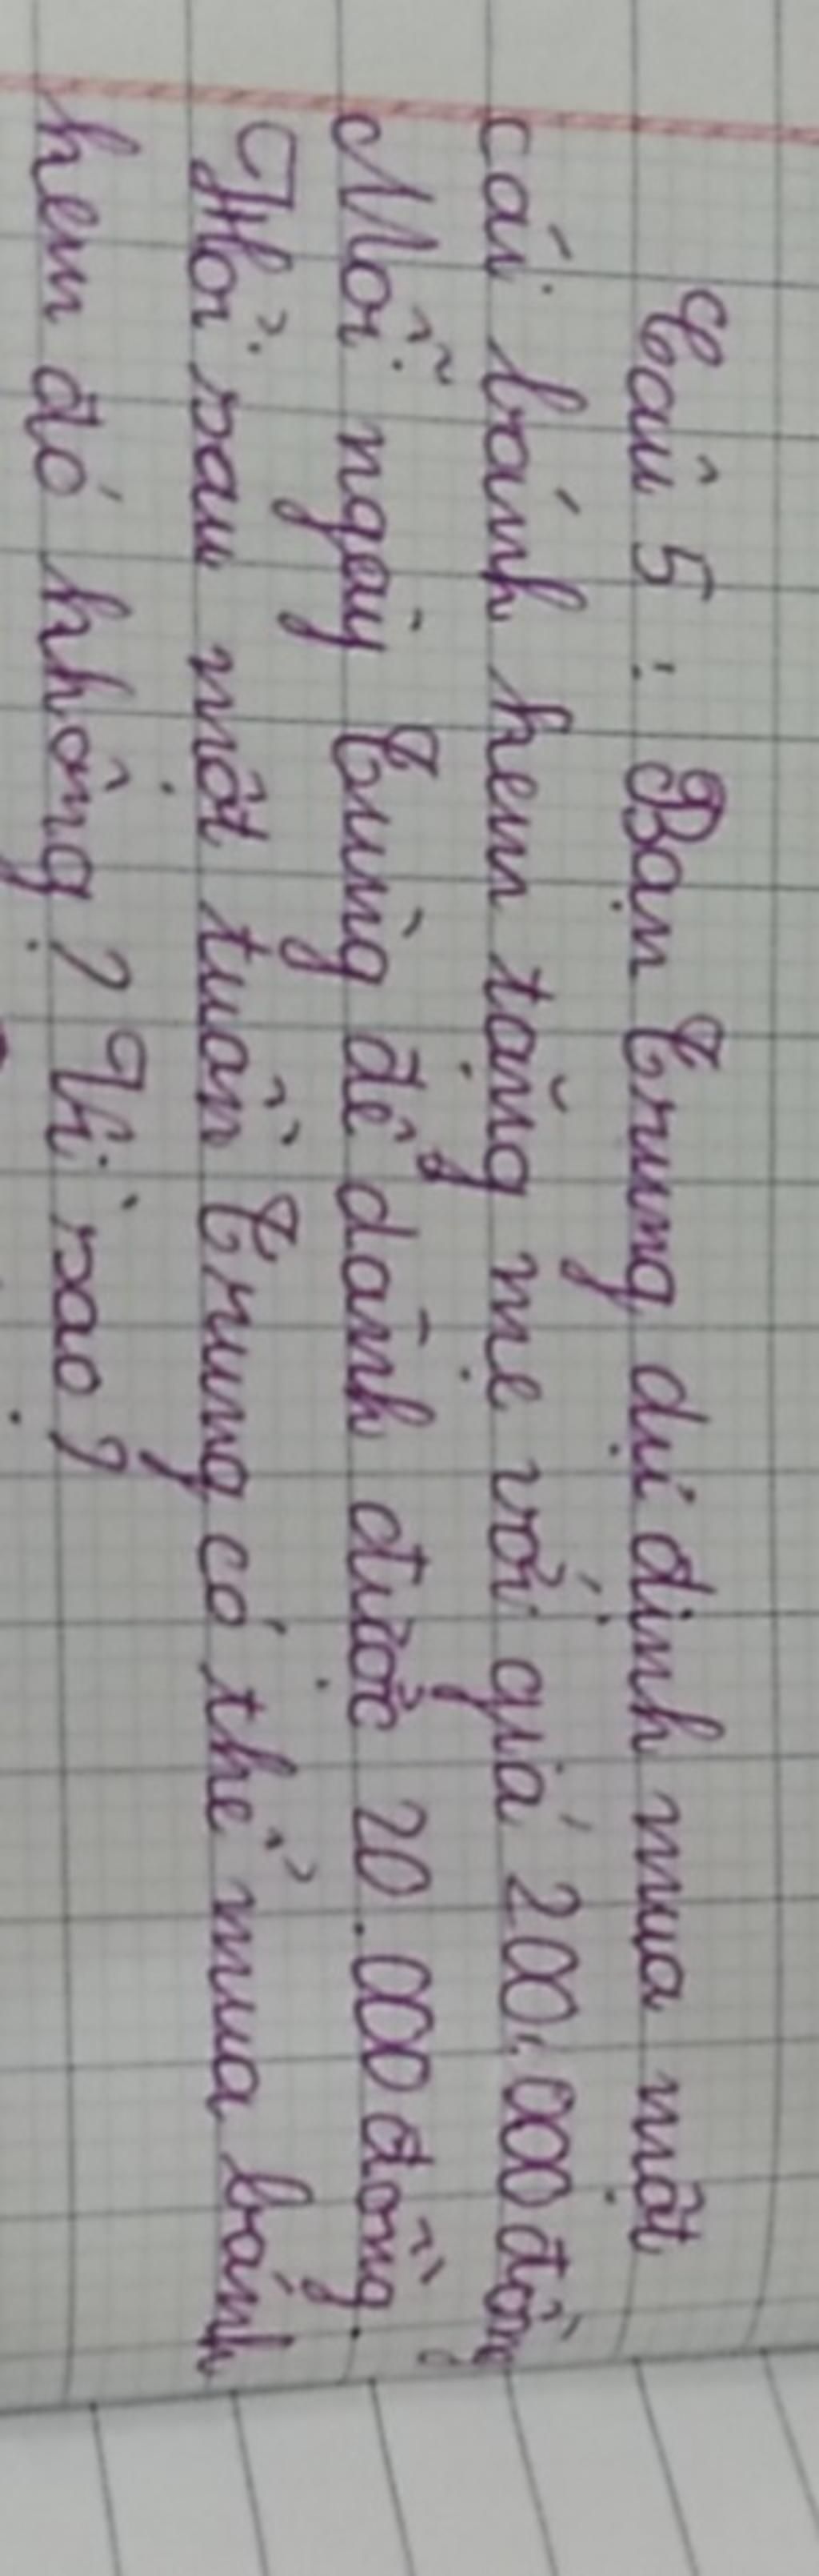 Câu 5 : Bạn Trung dự định mua một
cái bánh kem tặng mẹ với giá 200.000 đồng
Mỗi ngày Trung để dành được 20.000 đồng.
Hỏi sau một tuần Trung có thể mua bánh
kem đó không ? Vì sao ?